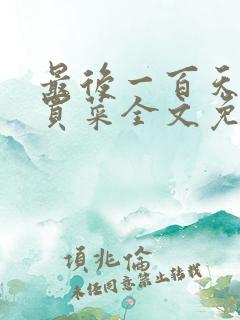 最後一百天
買菜全文免
項兆倫
未经同意禁止转载